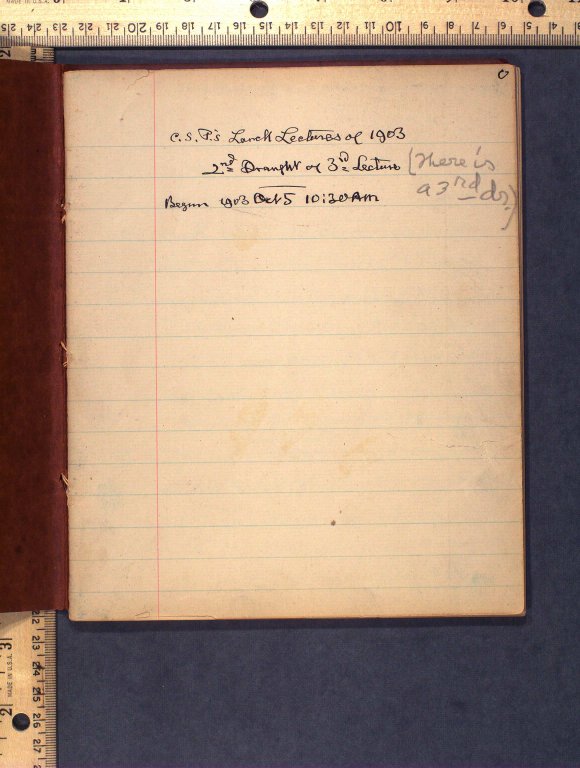 0
C.S.P.'s Lowell Lectures of 1903
2nd Draught of 3rd Lecture (There is
a 3rd dr.)
Begun 1903 Oct 5 10:30 AM
MADE IN U.S.A.